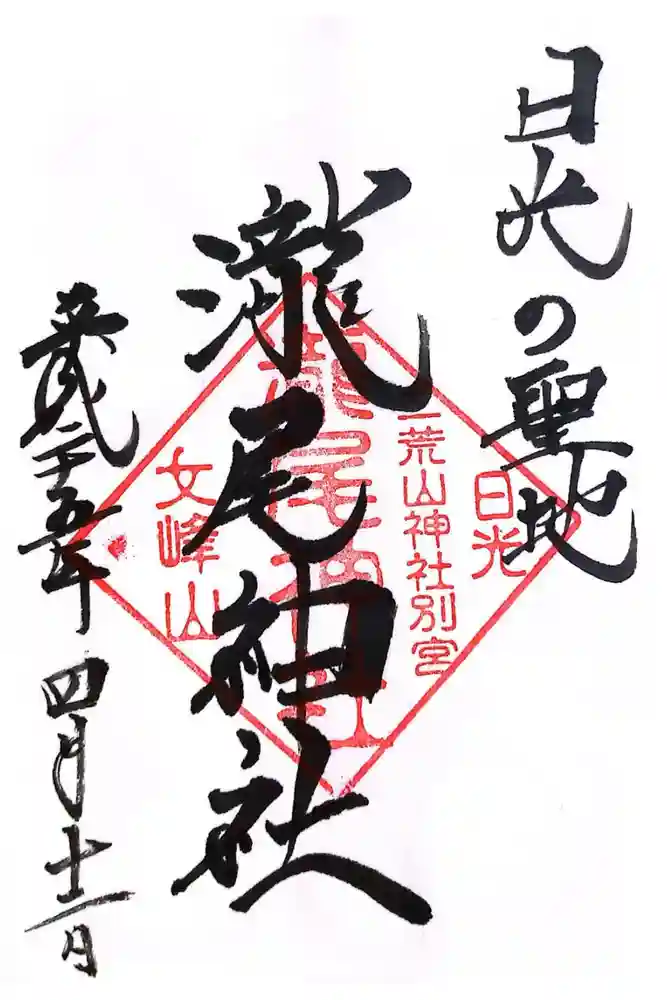 日光の聖地
日光
二荒山神社別宮
瀧尾神社
瀧尾神社
女峰山
平成二十五年四月十二日